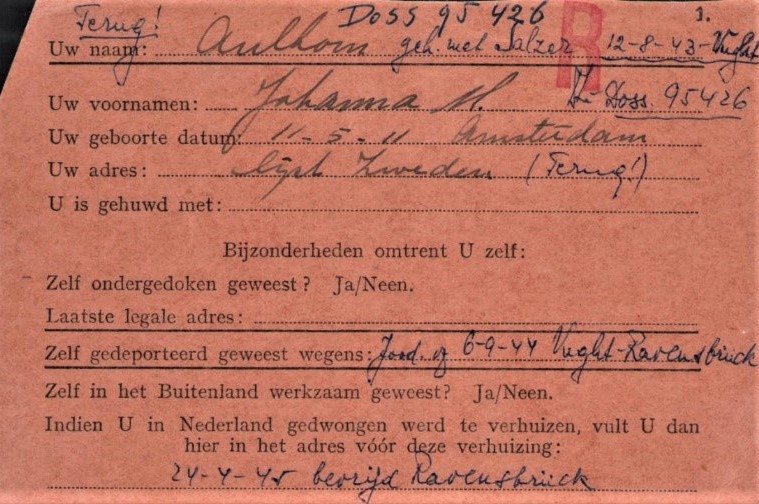 Terug! Doss 95 426 1.
Uw naam: Aulhorn geh. met Salzer 12-8-43-Vught
R
Uw voornamen: Johanna M. Doss. 95426
Uw geboorte datum: 11-5-11 Amsterdam
Uw adres: lijst Zweden (Terug!)
U is gehuwd met:
Bijzonderheden omtrent U zelf:
Zelf ondergedoken geweest? Ja/Neen.
Laatste legale adres:
Zelf gedeporteerd geweest wegens: Jood. 6-9-44 Vught-Ravensbrück
Zelf in het Buitenland werkzaam geweest? Ja/Neen.
Indien U in Nederland gedwongen werd te verhuizen, vult U dan
hier in het adres vóór deze verhuizing:
24-4-45 bevrijd Ravensbrück